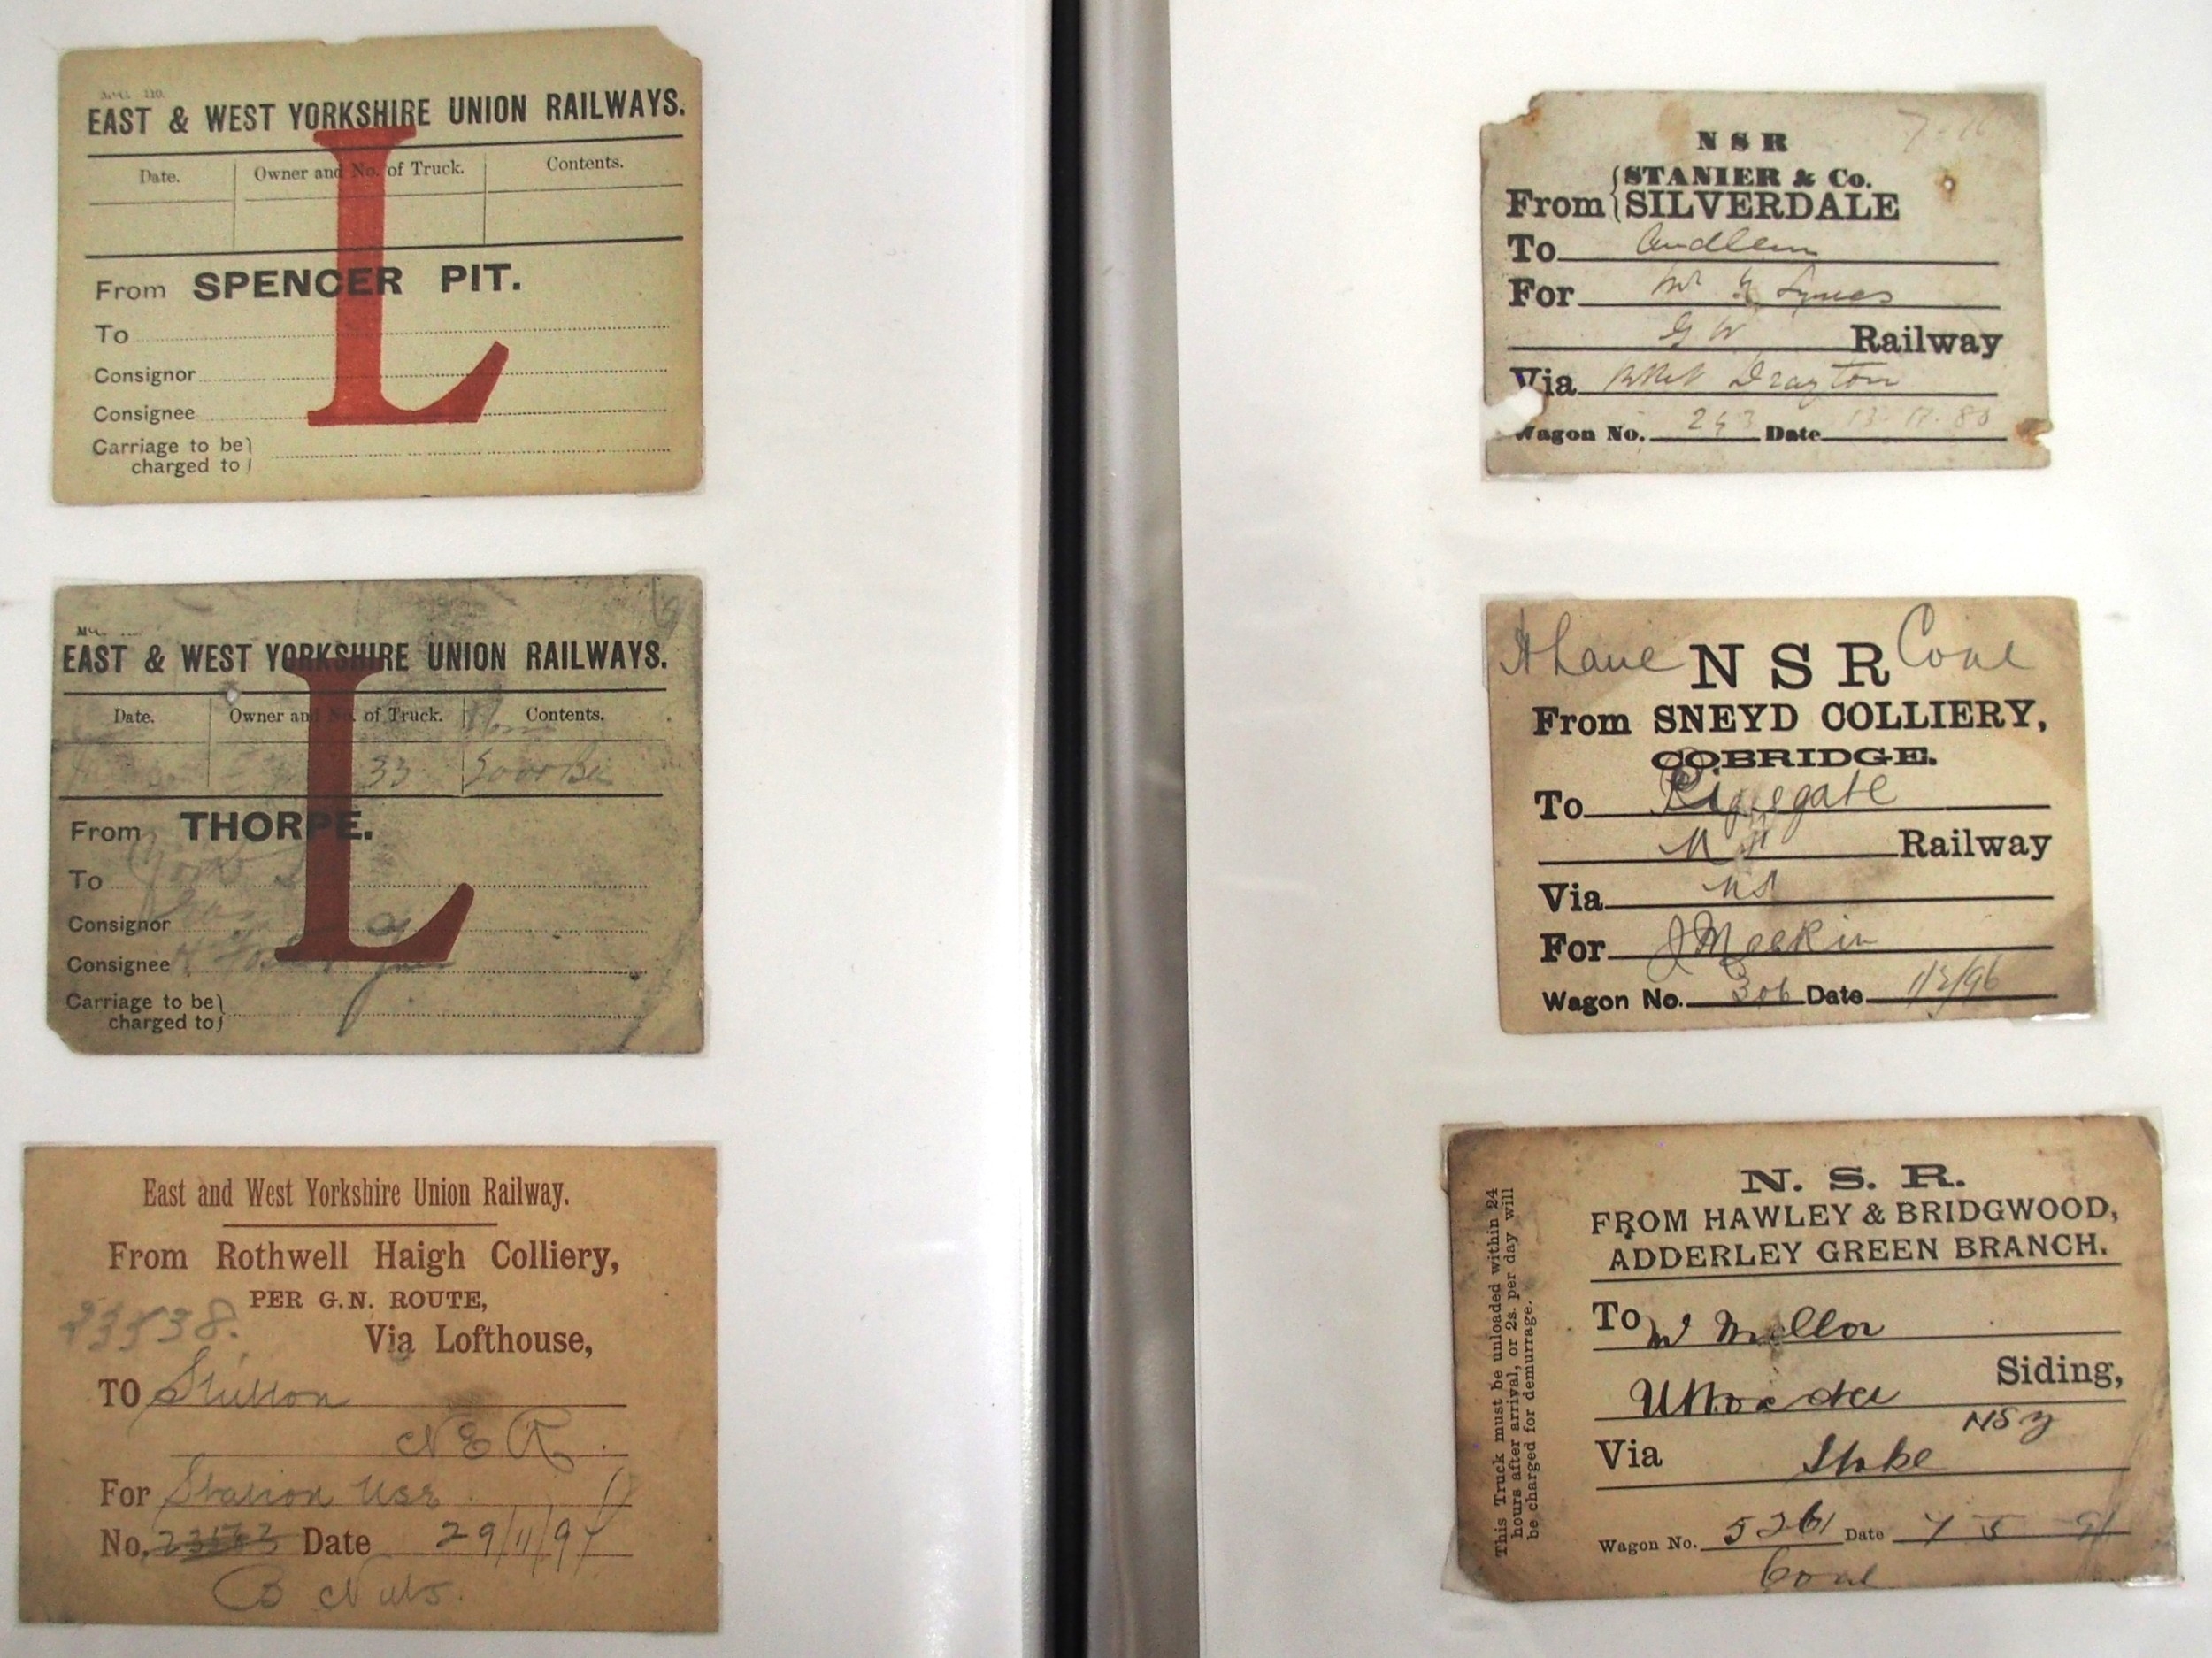 EAST & WEST YORKSHIRE UNION RAILWAYS.
Date. Owner and No. of Truck. Contents.
From SPENCER PIT.
To
Consignor
Consignee
Carriage to be
charged to
L
EAST & WEST YORKSHIRE UNION RAILWAYS.
Date. Owner and No. of Truck. Contents.
33
From THORPE.
To
Consignor
Consignee
Carriage to be
charged to
L
East and West Yorkshire Union Railway.
From Rothwell Haigh Colliery,
PER G.N. ROUTE,
23538.
Via Lofthouse,
TO
NER.
For Station Use
No. Date 29/11/97
B Nuts.
NSR
STANIER & Co.
From SILVERDALE
To Audlem
For Mr
G W Railway
Via Drayton
Wagon No. 243 Date
NSR Coal
From SNEYD COLLIERY,
COBRIDGE.
To
Railway
Via NS
For J Meakin
Wagon No. 306 Date 1/2/96
This Truck must be unloaded within 24
hours after arrival, or 2s. per day will
be charged for demurrage.
N. S. R.
FROM HAWLEY & BRIDGWOOD,
ADDERLEY GREEN BRANCH.
To W Mellor
Uttoxeter Siding,
Via Stoke
Wagon No. 5261 Date
Coal